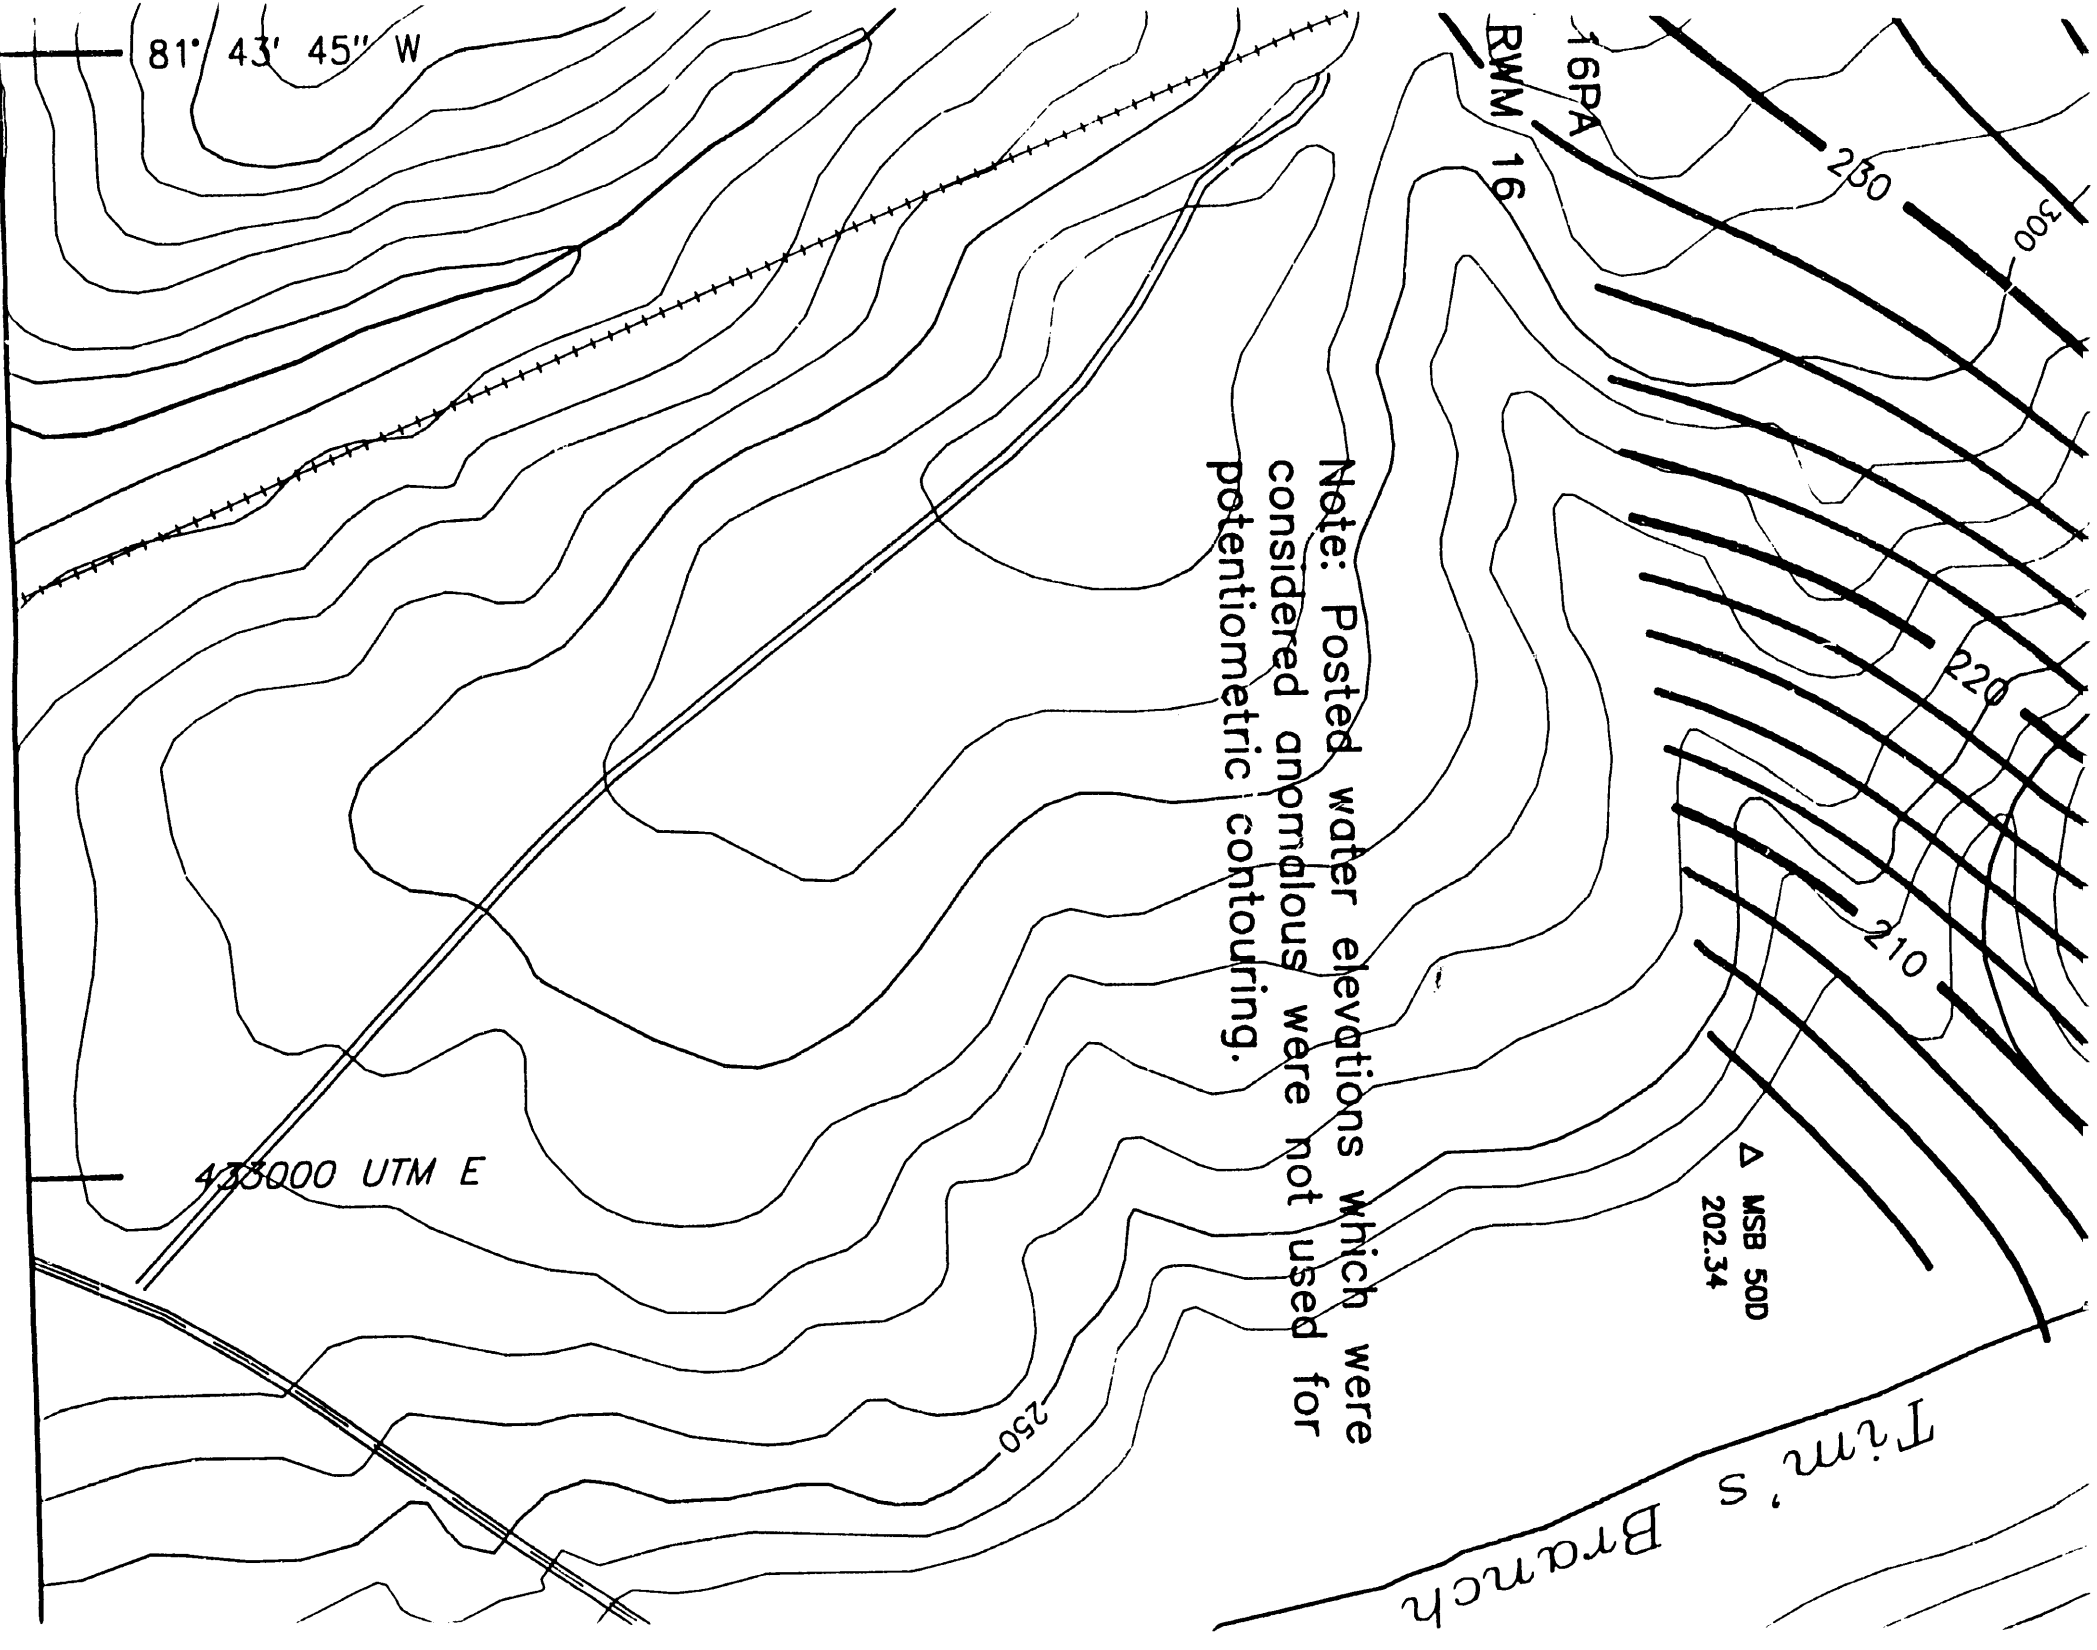 81° 43' 45" W
16PA
RWM 16
230
300
220
210
Note: Posted water elevations which were
considered anomalous were not used for
potentiometric contouring.
MSB 50D
202.34
433000 UTM E
250
Tim's Branch